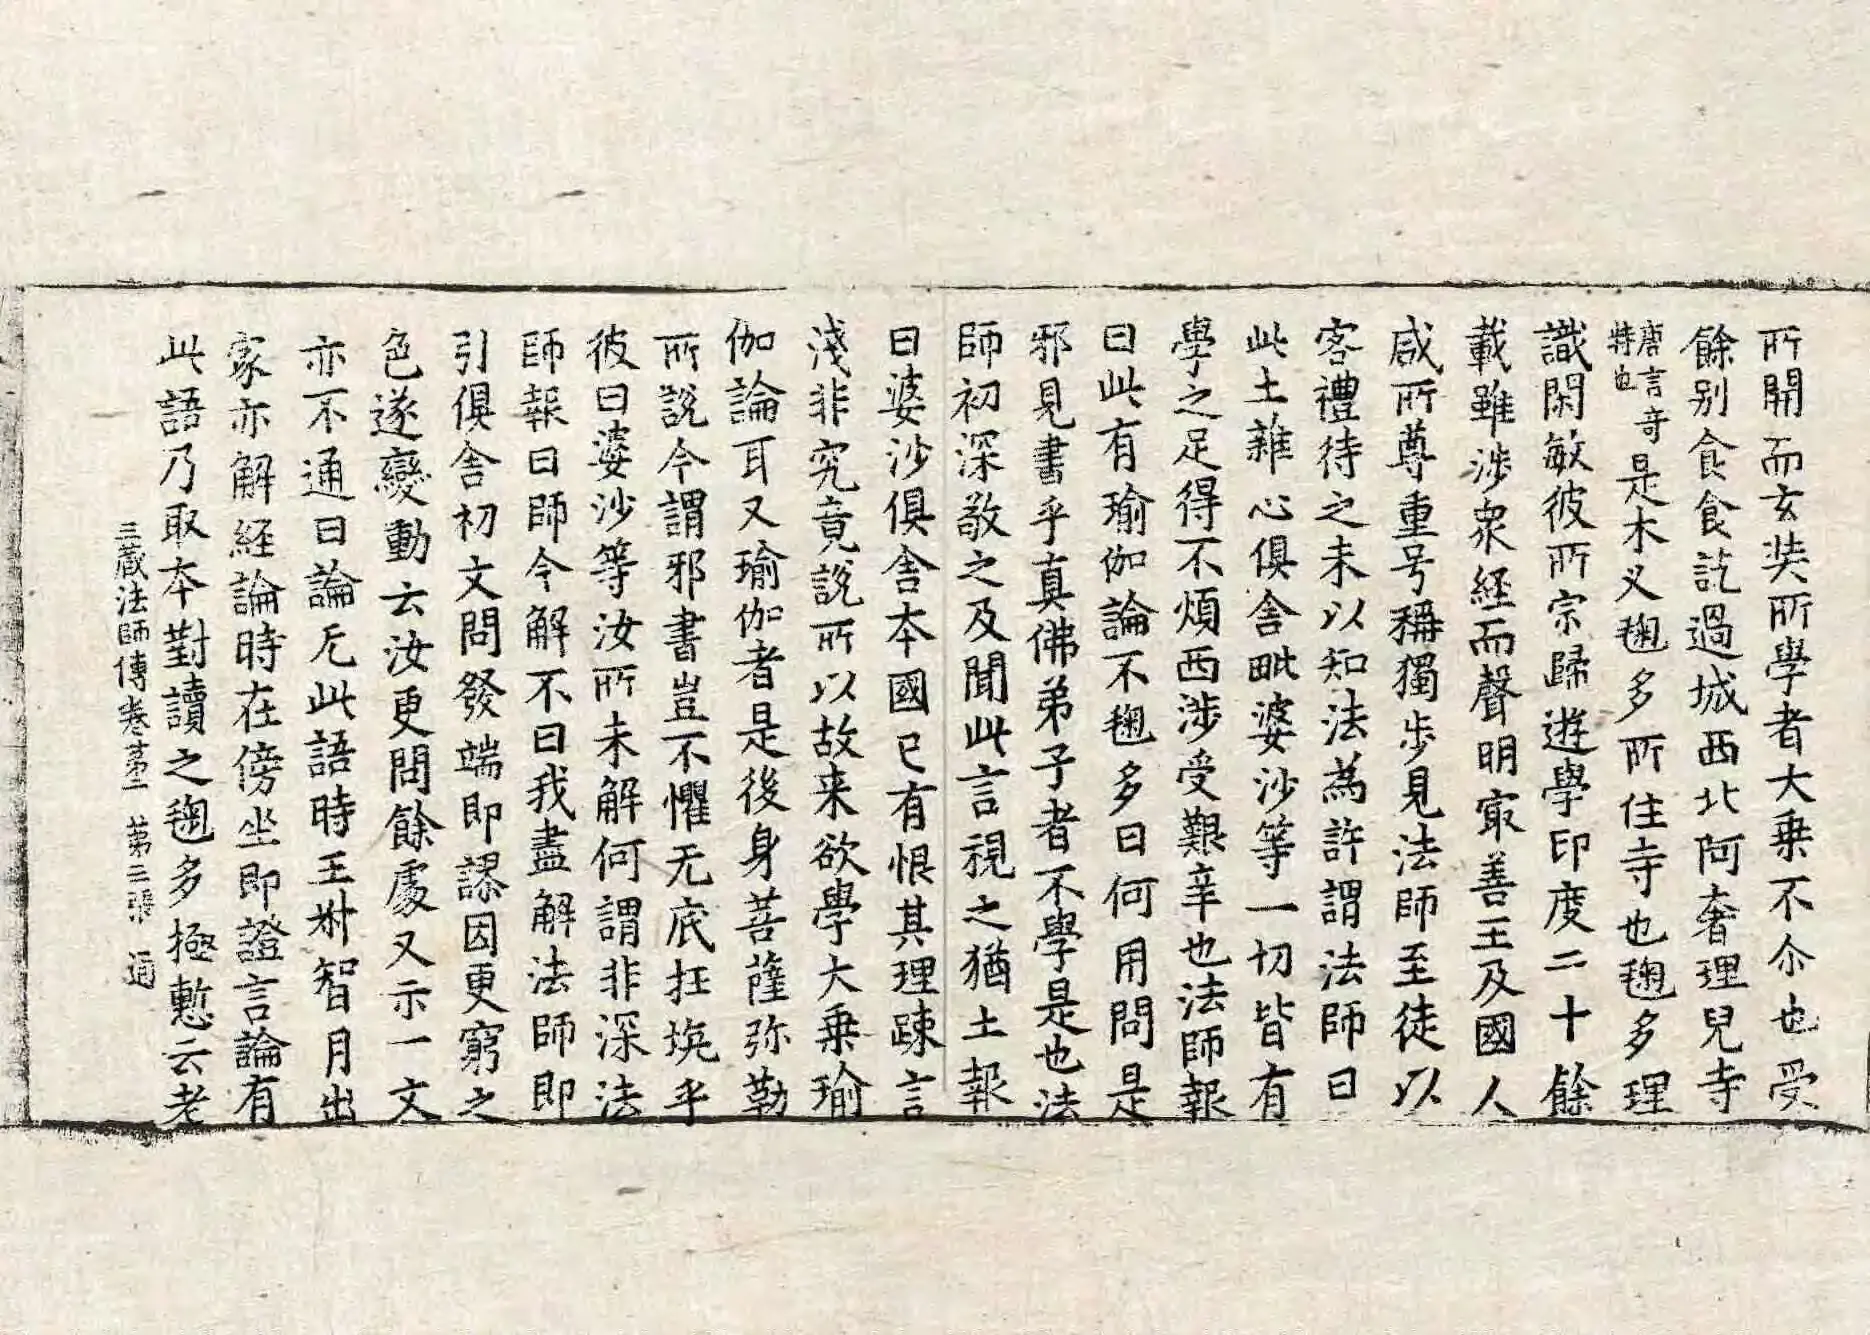 所開而玄奘所學者大乗不尒也受
餘别食食訖過城西北阿奢理兒寺
唐言奇
特也
是木义毱多所住寺也毱多理
識閑敏彼所宗歸遊學印度二十餘
載雖涉衆經而聲明㝡善王及國人
咸所尊重号稱獨步見法師至徒以
客禮待之未以知法為許謂法師曰
此土雜心俱舍毗婆沙等一切皆有
學之足得不煩西涉受艱辛也法師報
曰此有瑜伽論不毱多曰何用問是
邪見書乎真佛弟子者不學是也法
師初深敬之及聞此言視之猶土報
曰婆沙俱舍本國已有恨其理踈言
淺非究竟說所以故来欲學大乗瑜
伽論耳又瑜伽者是後身菩薩弥勒
所說今謂邪書豈不懼无底抂坑乎
彼曰婆沙等汝所未解何謂非深法
師報曰師今解不曰我盡解法師即
引俱舍初文問發端即謬因更窮之
色遂變動云汝更問餘處又示一文
亦不通曰論无此語時王叔智月出
家亦解經論時在傍坐即證言論有
此語乃取本對讀之毱多極慙云老
三藏法師傳卷苐二 苐二張 通